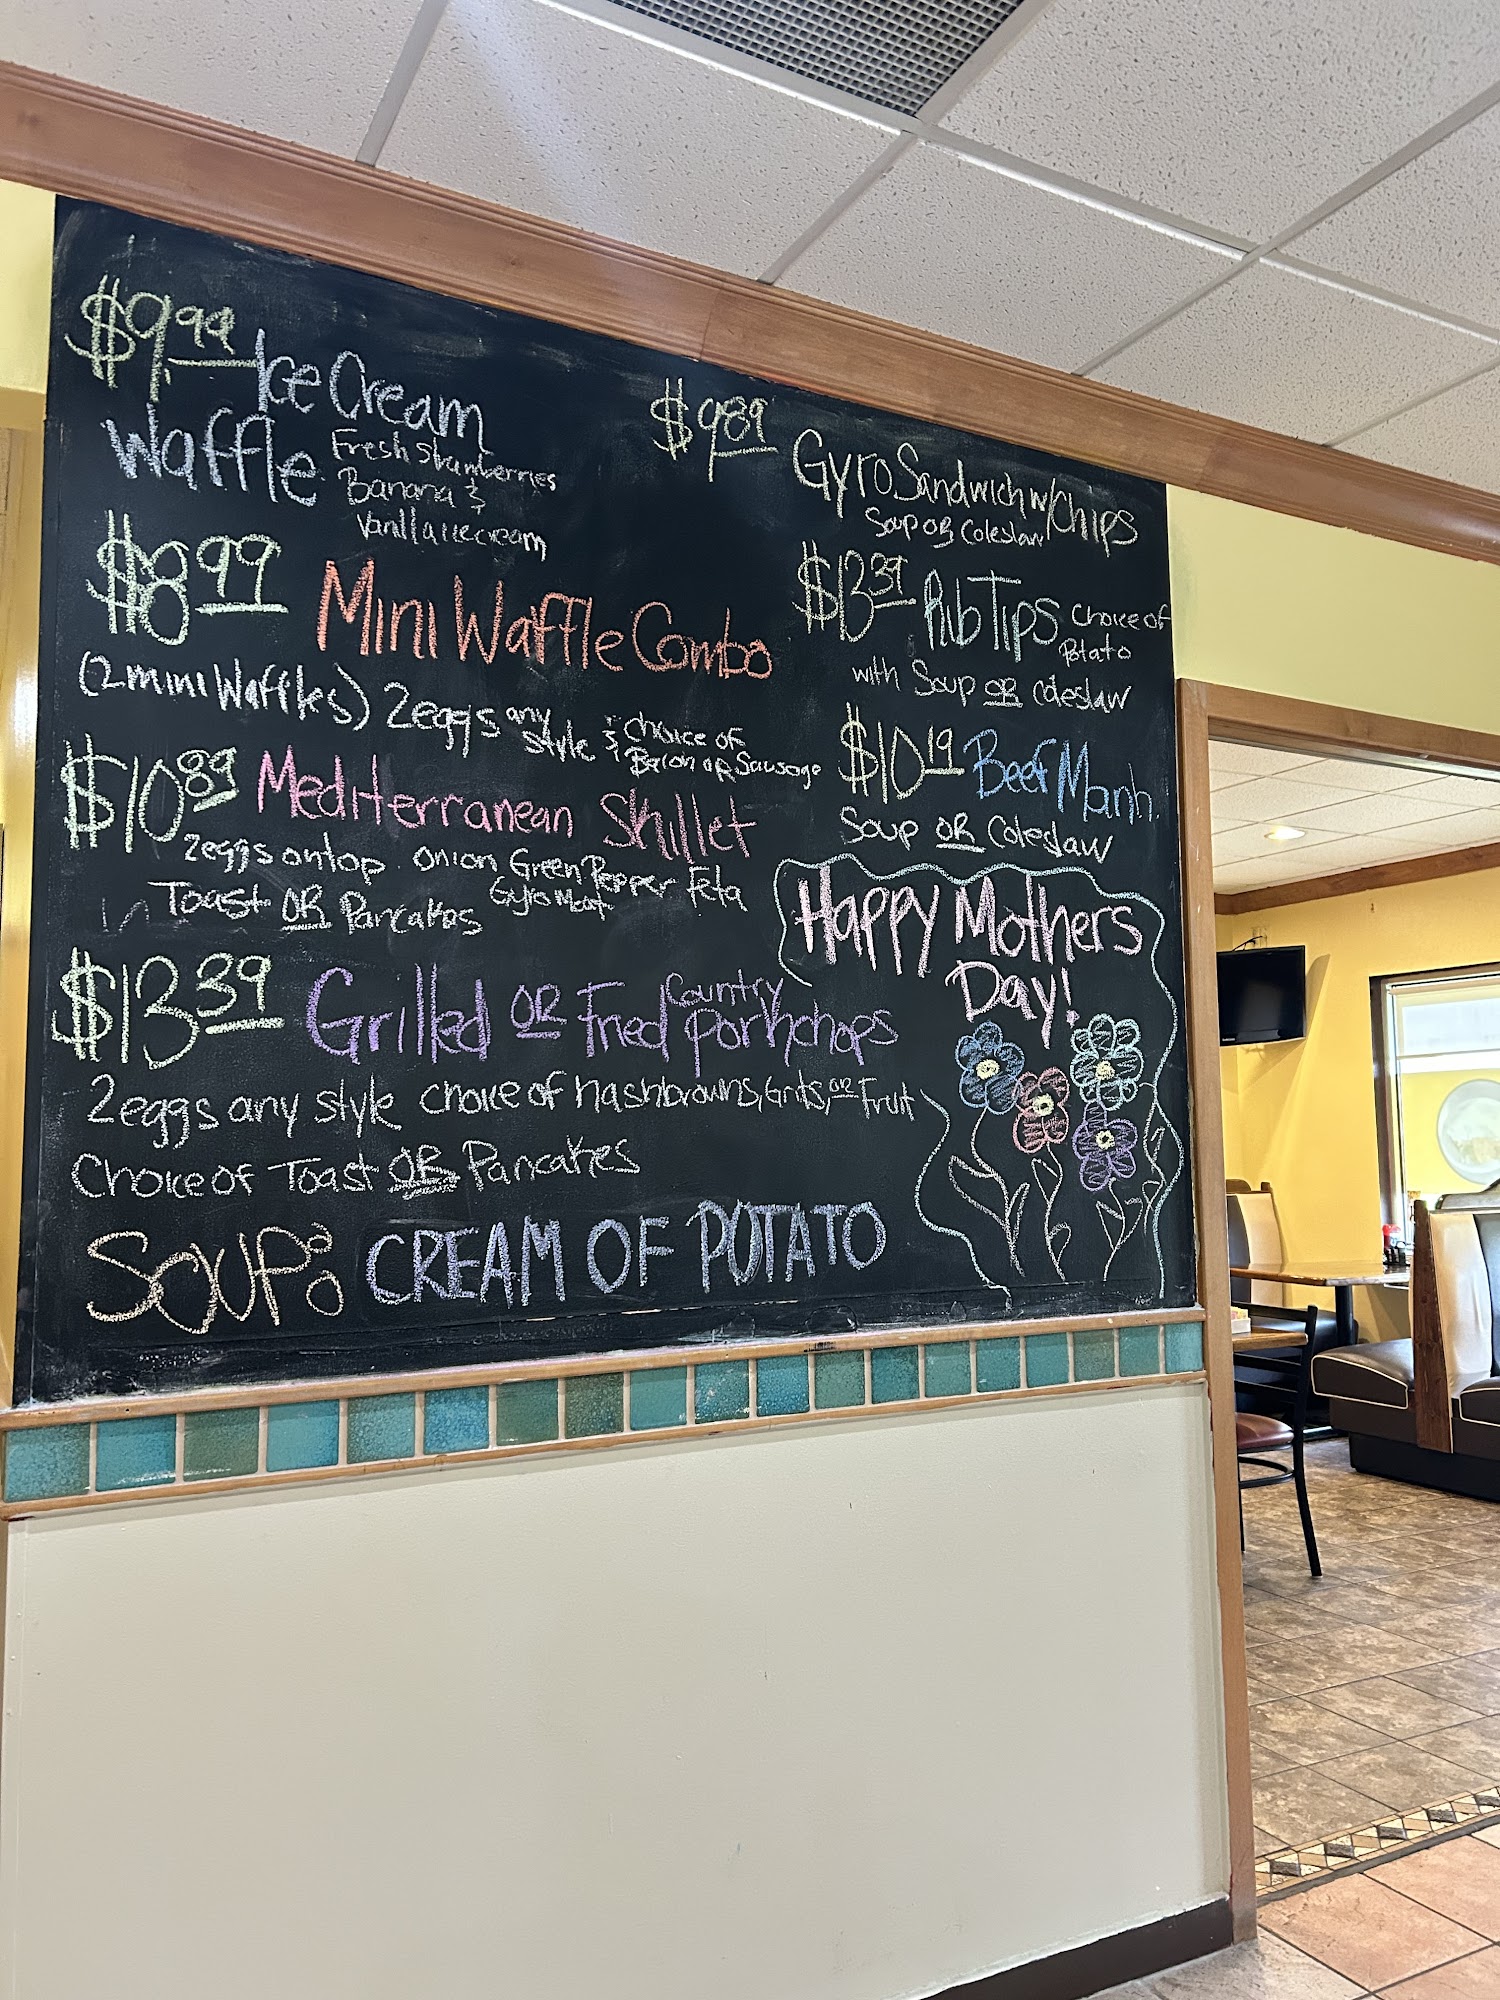 $9.99 Ice Cream
Waffle
Fresh Strawberries
Banana &
Vanilla icecream
$8.99 Mini Waffle Combo
(2 mini Waffles) 2 eggs any style & choice of
Bacon OR Sausage
$10.89 Mediterranean Skillet
2 eggs on top Onion Green Pepper Feta
Gyro Meat
Toast OR Pancakes
$13.39 Grilled OR Fried Country porkchops
2 eggs any style choice of hashbrowns, Grits, OR Fruit
Choice of Toast OR Pancakes
SOUP: CREAM OF POTATO
$9.89 Gyro Sandwich w/Chips
Soup OR Coleslaw
$13.39 Rib Tips Choice of
Potato
with Soup OR coleslaw
$10.19 Beef Manh.
Soup OR Coleslaw
Happy Mothers
Day!